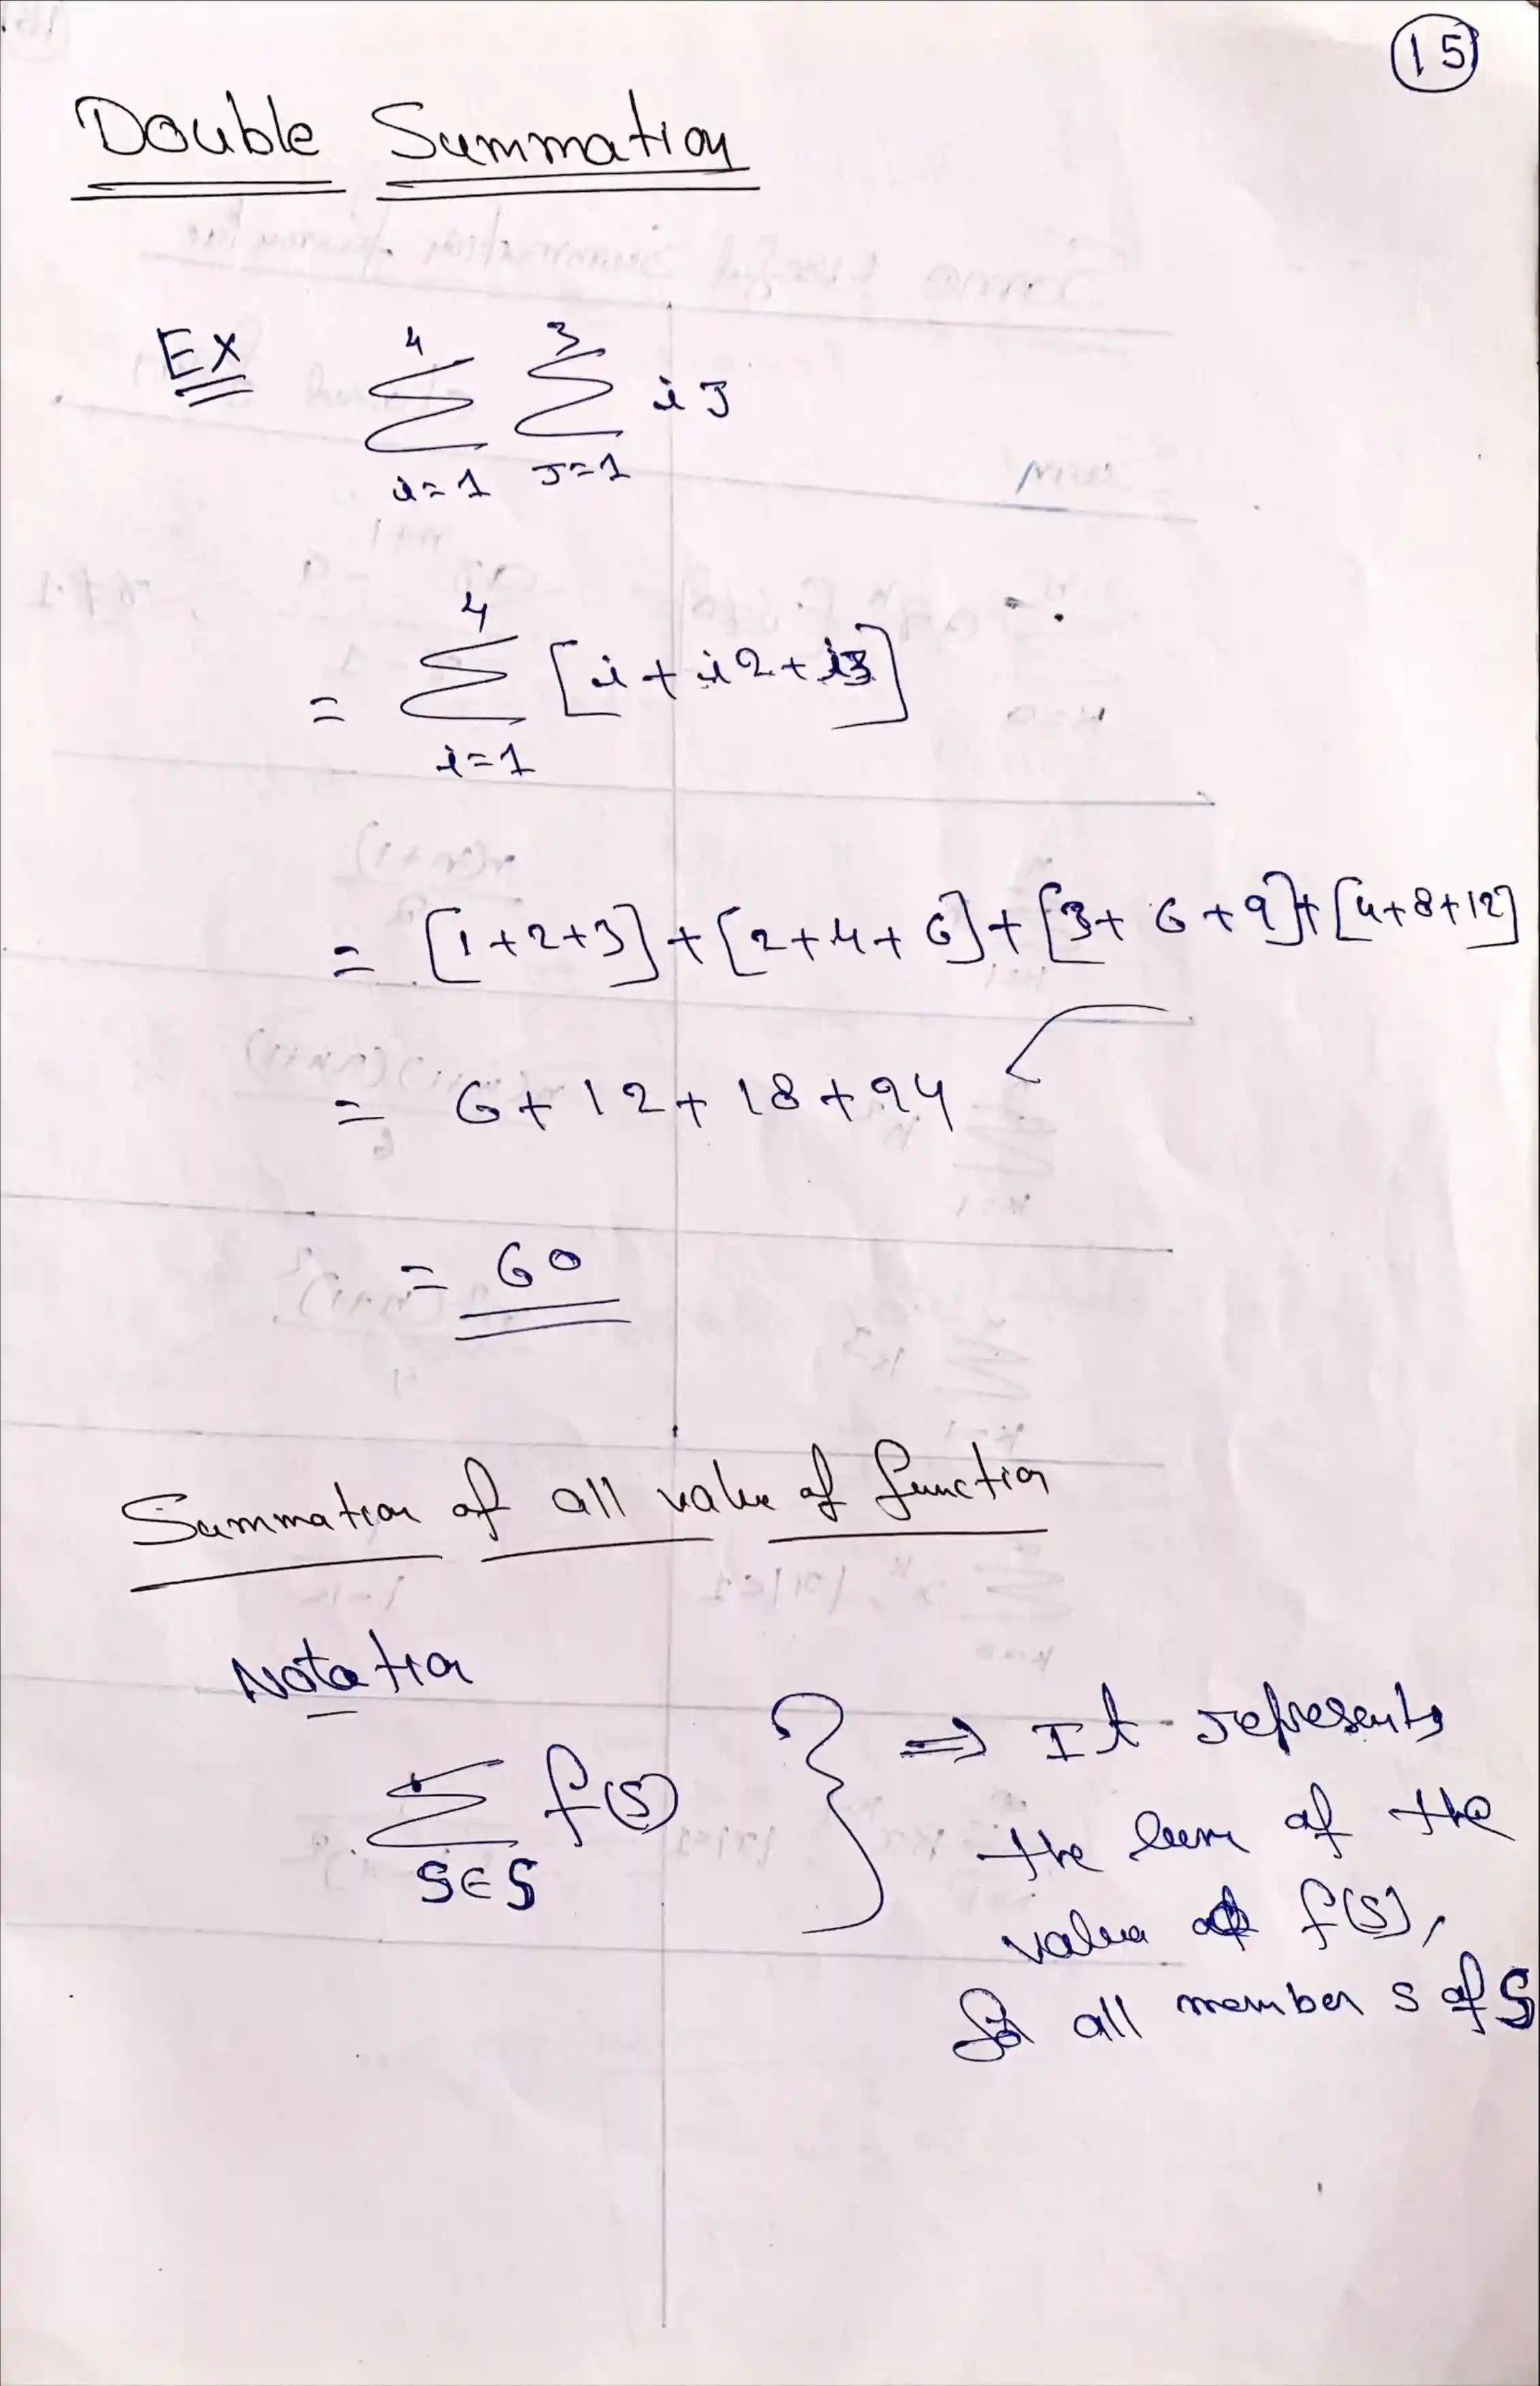 15
Double Summation
Ex 4 3
∑ ∑ iJ
i=1 J=1
4
= ∑ [i + i2 + i3]
i=1
= [1+2+3] + [2+4+6] + [3+6+9] + [4+8+12]
= 6 + 12 + 18 + 24
= 60
Summation of all value of function
Notation
∑ f(s) } ⇒ It represents
s∈S
the sum of the
value of f(s),
for all member s of S